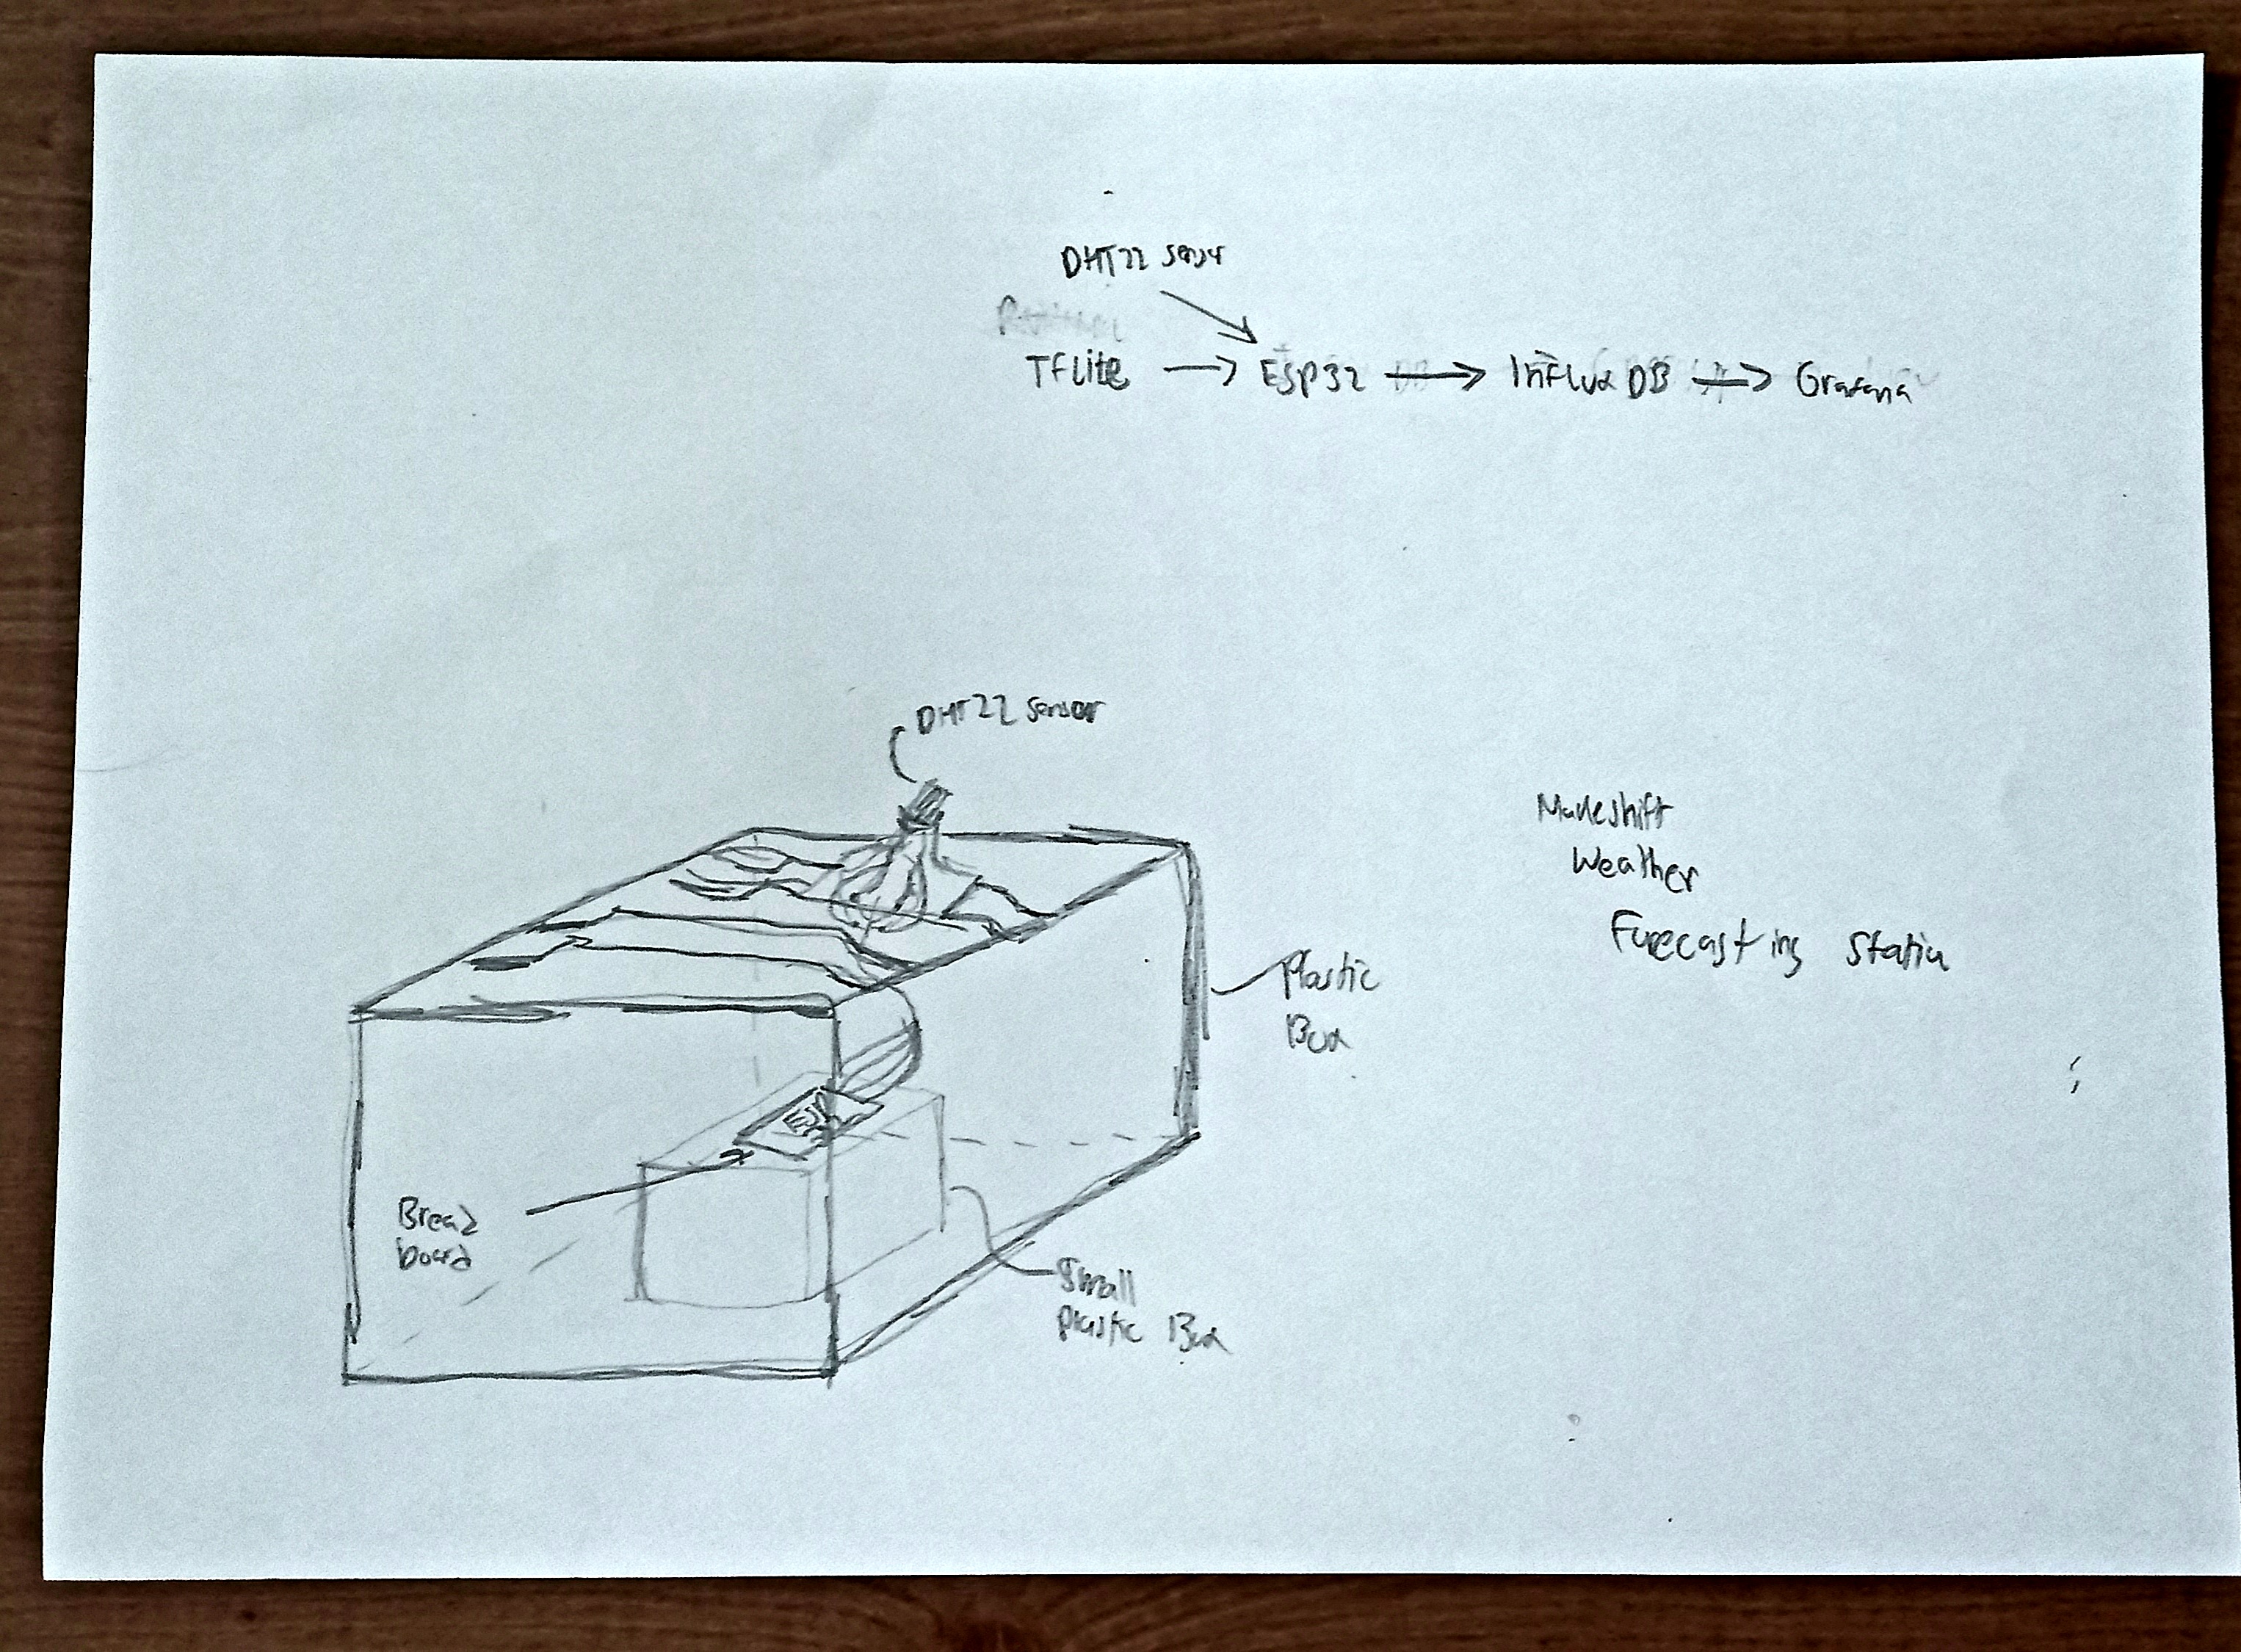 DHT22 sensor
TFLite → ESP32 → InfluxDB → Grafana
DHT22 sensor
Makeshift
Weather
Forecasting Station
Plastic
Box
Bread
board
Small
plastic Box